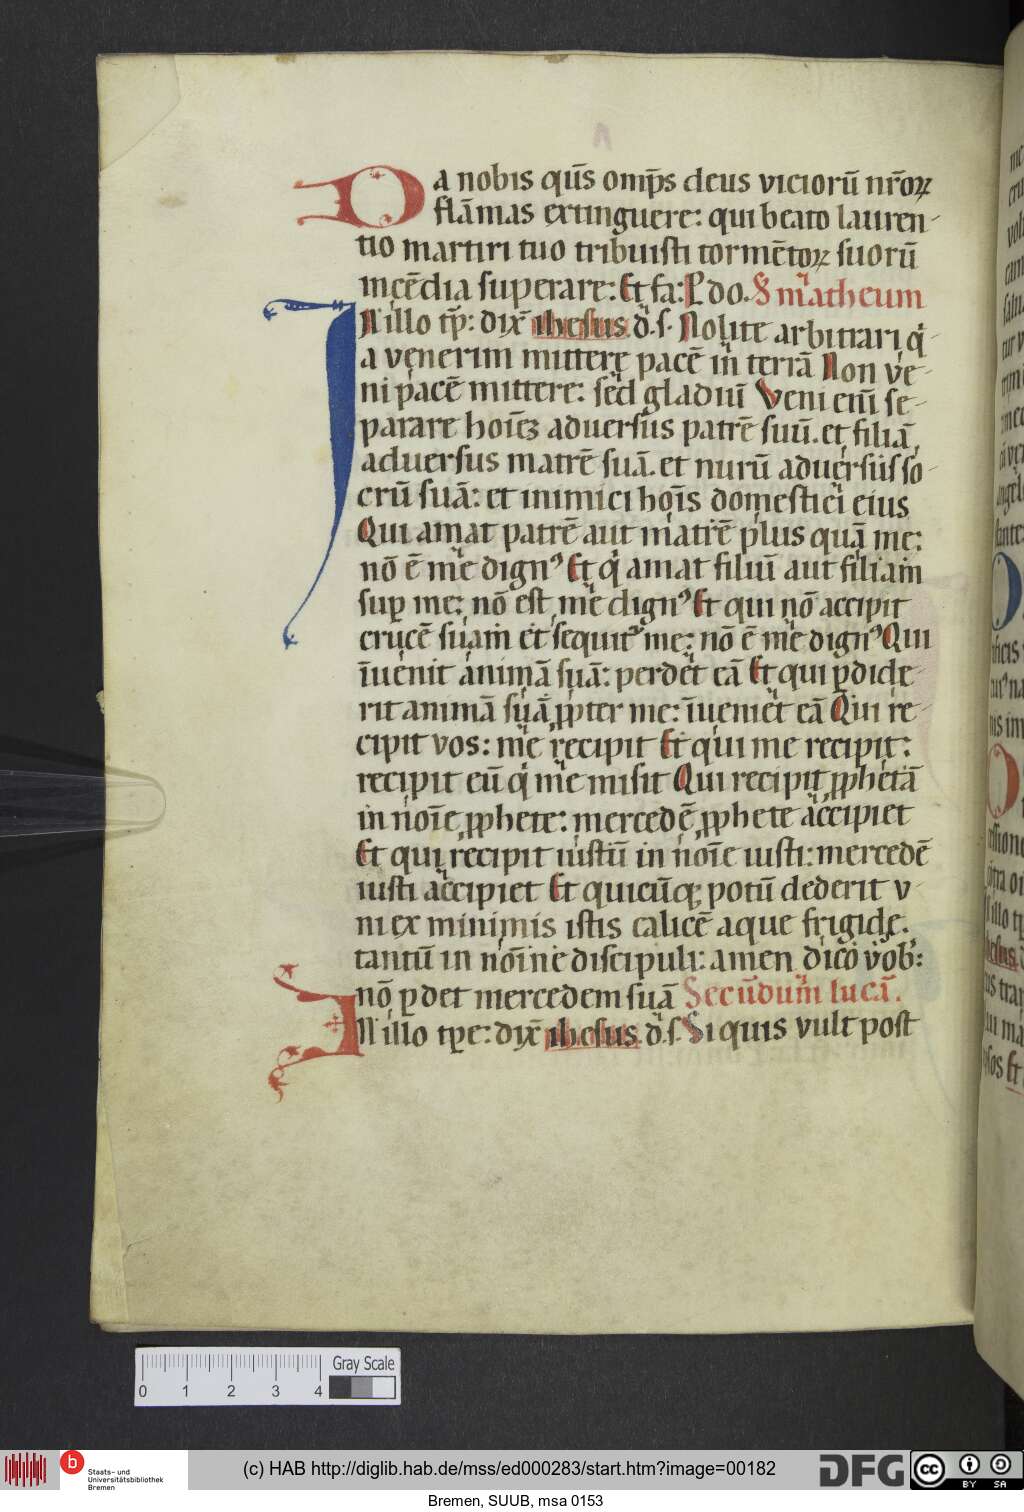 Da nobis qūs omp̄s deus viciorū nr̄oꝝ
flāmas extinguere: qui beato lauren-
tio martiri tuo tribuisti tormētoꝝ suorū
incēdia superare: Et fa: P do. S matheum
IN illo tp̄: dix̄ ihesus d. s. Nolite arbitrari q̇
a venerim mittere pacē in terrā Non ve-
ni pacē mittere: sed gladiū Veni enī se-
parare hoīeꝫ aduersus patrē suū. et filiā
aduersus matrē suā. et nurū aduersus so-
crū suā: et inimici hoīs domestici eius
Qui amat patrē aut matrē plus quā me:
nō ē me dignꝰ Et q̇ amat filiū aut filiam
suꝑ me: nō est me dignꝰ Et qui nō accipit
crucē suam et sequit᷑ me: nō ē me dignꝰ Qui
īuenit animā suā: perdet eā Et qui ꝑdide-
rit animā suā ꝓpter me: īueniet eā Qui re-
cipit vos: me recipit Et qui me recipit:
recipit eū q̇ me misit Qui recipit ꝓphetā
in noīe ꝓphete: mercedē ꝓphete accipiet
Et qui recipit iustū in noīe iusti: mercedē
iusti accipiet Et quicūqꝫ potū dederit v-
ni ex minimis istis calicē aque frigide.
tantū in noīne discipuli: amen dico vob:
nō ꝑdet mercedem suā Secūdum lucā.
IN illo tꝑe: dix̄ ihesus d. s. Si quis vult post
0 1 2 3 4
Gray Scale
Staats- und
Universitätsbibliothek
Bremen
(c) HAB http://diglib.hab.de/mss/ed000283/start.htm?image=00182
DFG
cc
BY SA
Bremen, SUUB, msa 0153